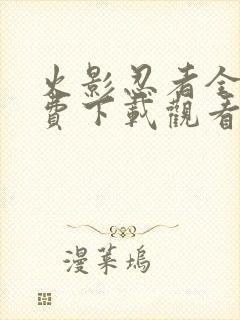 火影忍者全
費下載觀看
漫菓塢